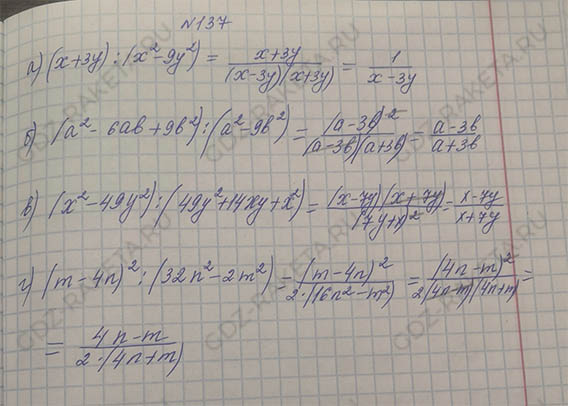 №137
а) (x+3y) : (x²-9y²) = \frac{x+3y}{(x-3y)(x+3y)} = \frac{1}{x-3y}
б) (a²-6ab+9b²) : (a²-9b²) = \frac{(a-3b)²}{(a-3b)(a+3b)} = \frac{a-3b}{a+3b}
в) (x²-49y²) : (49y²+14xy+x²) = \frac{(x-7y)(x+7y)}{(7y+x)²} = \frac{x-7y}{x+7y}
г) (m-4n)² : (32n²-2m²) = \frac{(m-4n)²}{2·(16n²-m²)} = \frac{(4n-m)²}{2(4n-m)(4n+m)} =
= \frac{4n-m}{2·(4n+m)}
GDZ-RAKETA.RU